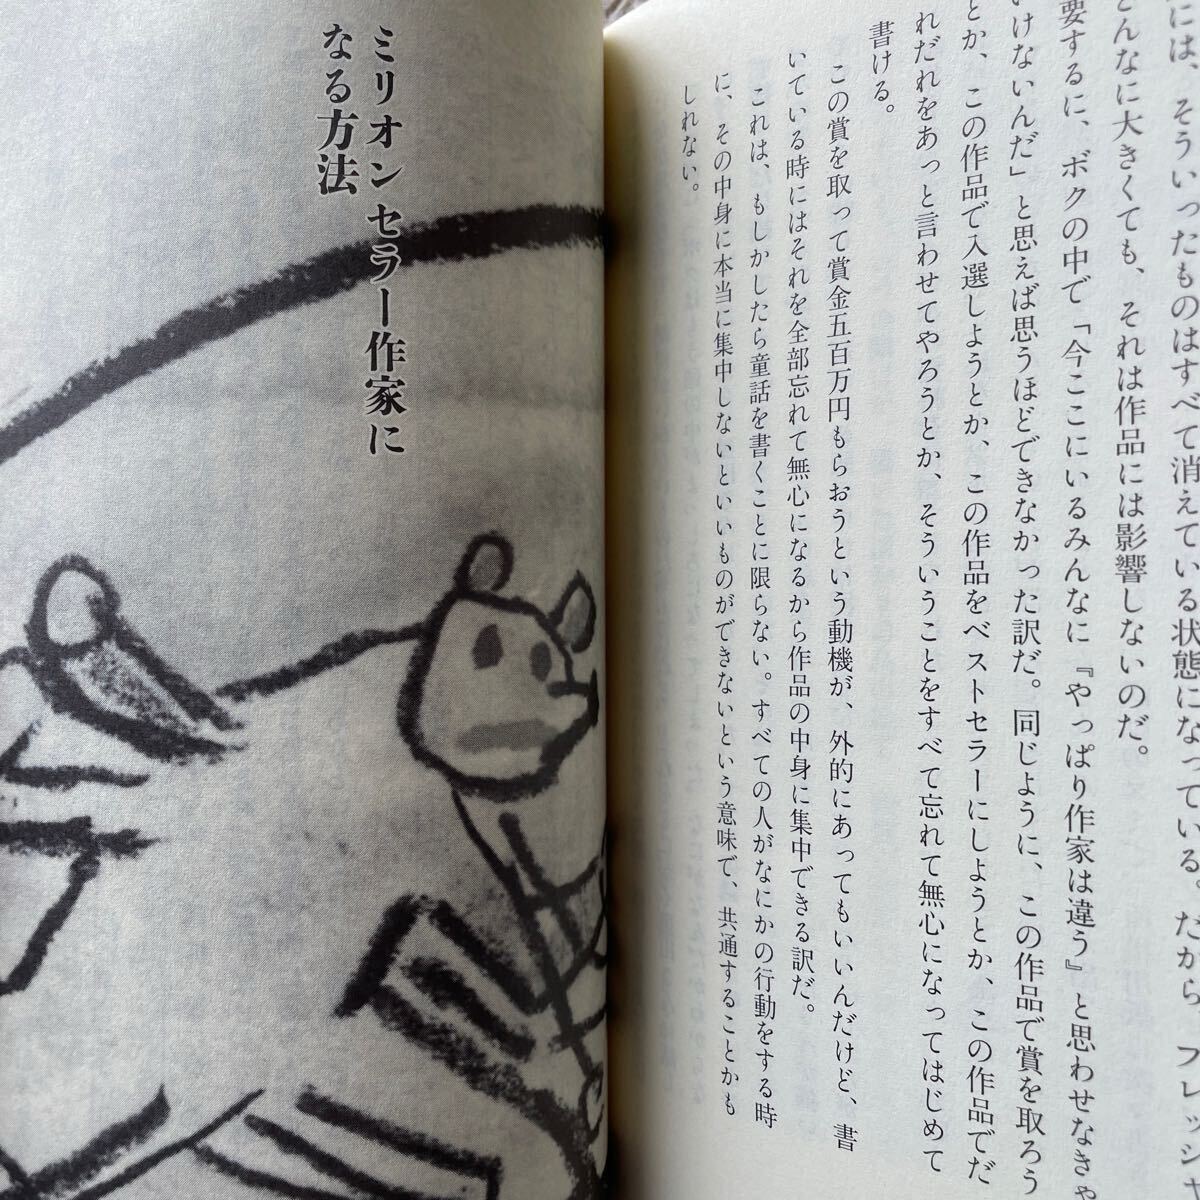 には、そういったものはすべて消えている状態になっている。だから、プレッシャ
どんなに大きくても、それは作品には影響しないのだ。
要するに、ボクの中で「今ここにいるみんなに『やっぱり作家は違う』と思わせなきゃ
いけないんだ」と思えば思うほどできなかった訳だ。同じように、この作品で賞を取ろう
とか、この作品で入選しようとか、この作品をベストセラーにしようとか、この作品でだ
れだれをあっと言わせてやろうとか、そういうことをすべて忘れて無心になってはじめて
書ける。
この賞を取って賞金五百万円もらおうという動機が、外的にあってもいいんだけど、書
いている時にはそれを全部忘れて無心になるから作品の中身に集中できる訳だ。
これは、もしかしたら童話を書くことに限らない。すべての人がなにかの行動をする時
に、その中身に本当に集中しないといいものができないという意味で、共通することかも
しれない。
ミリオンセラー作家に
なる方法